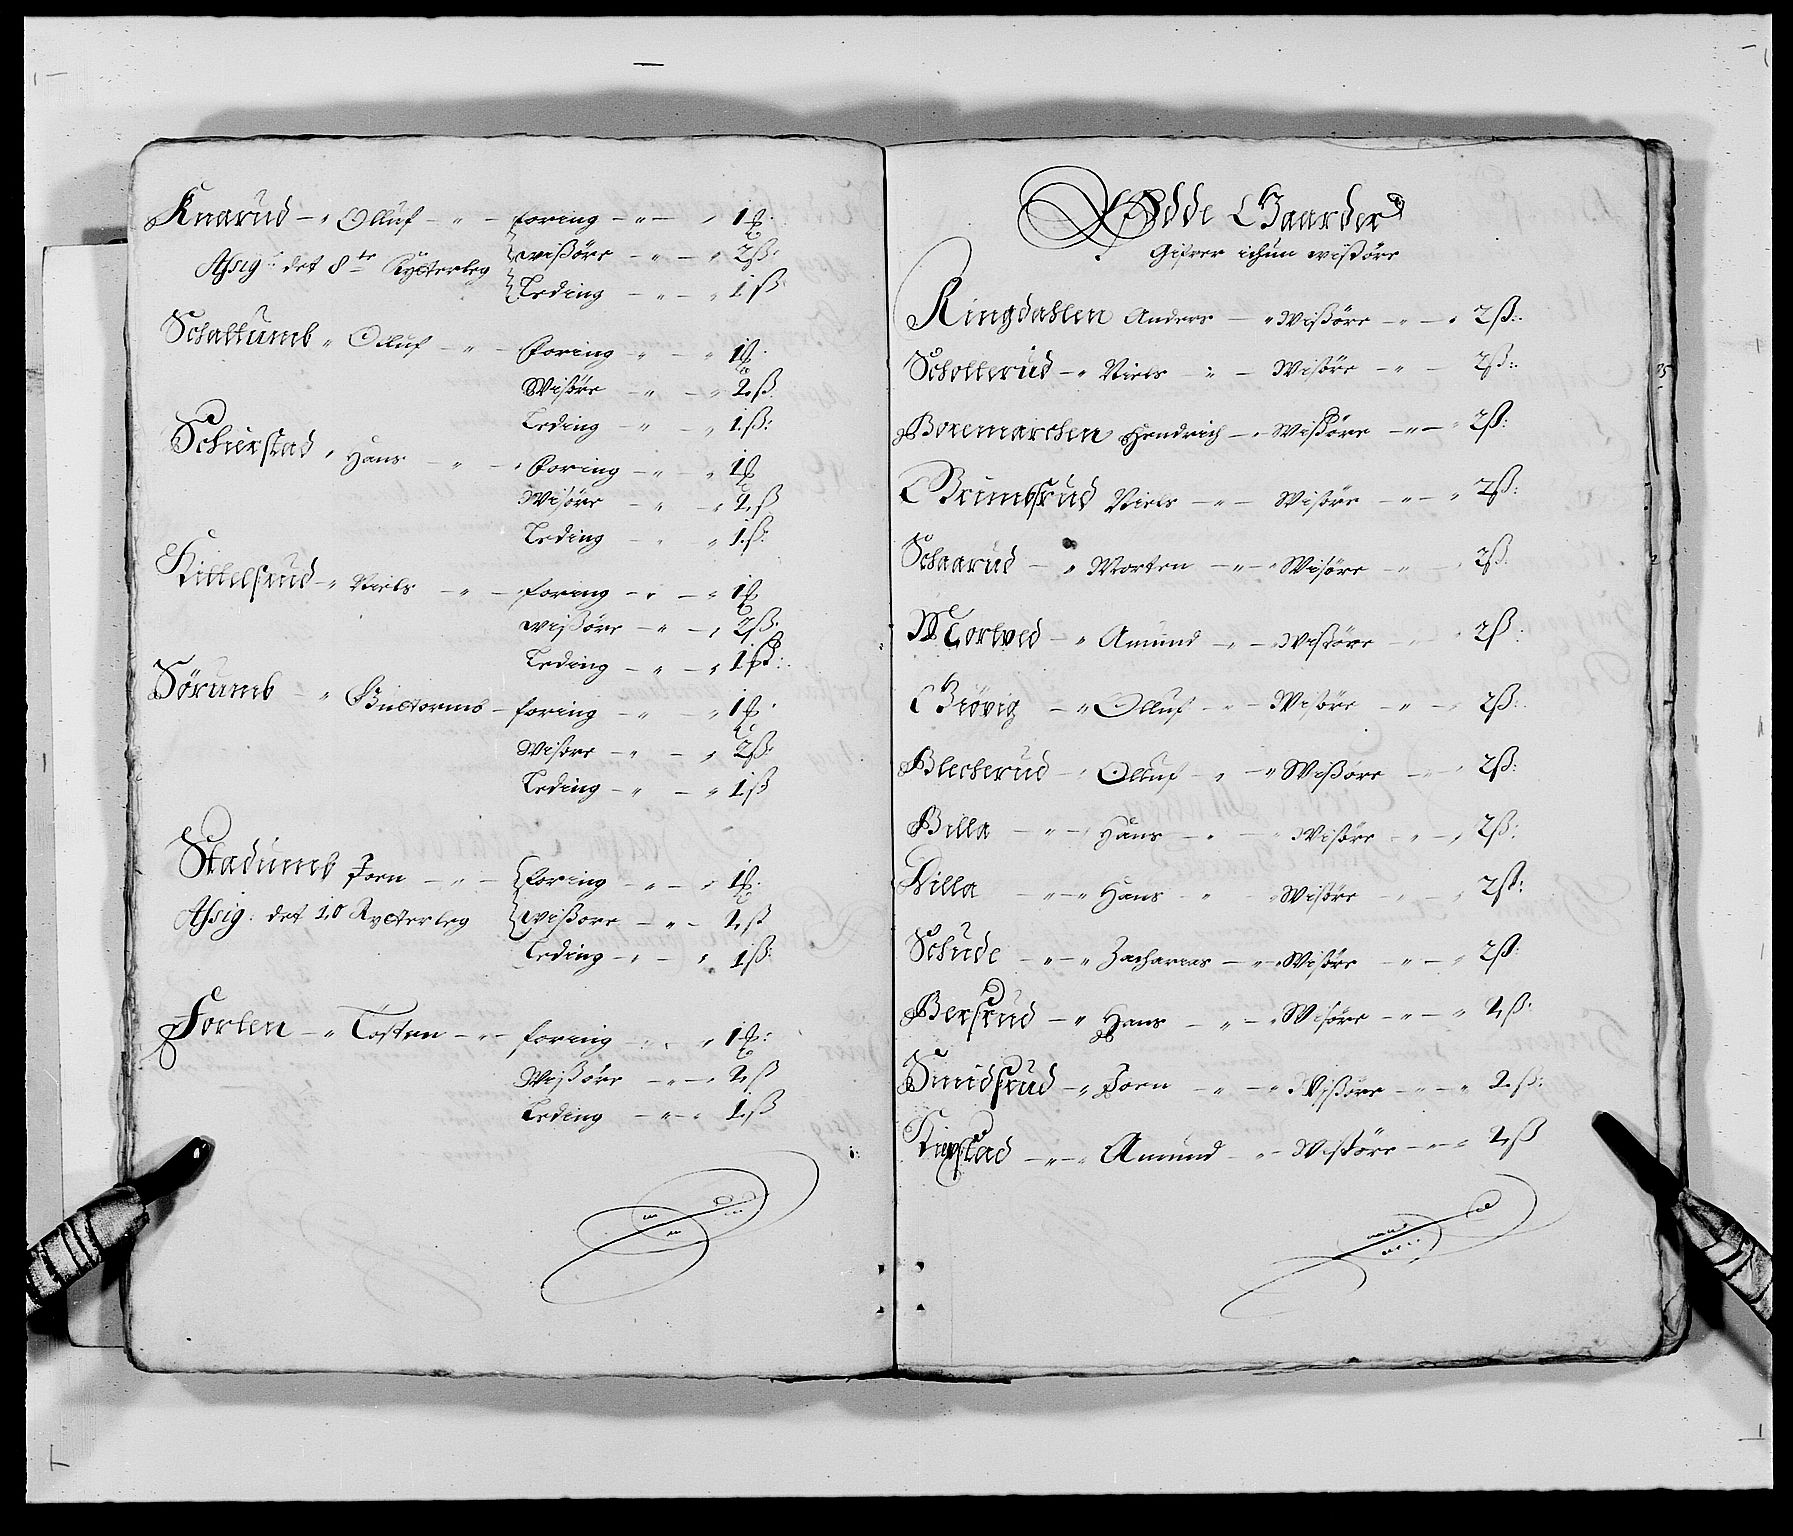 Knarud - Olluf - foring - 1 
Assig: det 8te Rytterleg wißöre - 2ß:
Leding - 1ß
Schattumb Olluf - foring - 1
Wißöre - 2ß
Leding - 1ß:
Schierstad Hans - foring - 1
Wißöre - 2ß
Leding - 1ß:
Kittelsrud - Niels - foring - 1
wißöre - 2ß:
Leding - 1ß:
Sørumb - Guttormb - foring - 1
Wißöre - 2ß:
Leding - 1ß
Stadumb Joen - foring - 1
Assig: det 10 Rytterleg wißöre - 2ß
Leding - 1ß:
Forten - Tosten - foring - 1
Wißöre - 2ß
Leding - 1ß
Ødde Gaarder
Gifver ichun wißöre
Ringdahlen Anders - Wißöre - 2ß:
Schotterud - Niels - Wißöre - 2ß:
Boxemarchen Hendrich - Wißöre - 2ß:
Grimbsrud Niels - Wißöre - 2ß:
Schaarud - Morten - Wißöre - 2ß:
Mortved - Amund - Wißöre - 2ß:
Giövig - Olluf - Wißöre - 2ß:
Blecherud - Olluf - Wißöre - 2ß:
Billa - Hans - Wißöre - 2ß:
Villa - Hans - Wißöre - 2ß:
Schude - Zacharias - Wißöre - 2ß:
Bersrud - Hans - Wißöre - 2ß:
Smidsrud - Joen - Wißöre - 2ß:
Amund - Wißöre - 2ß